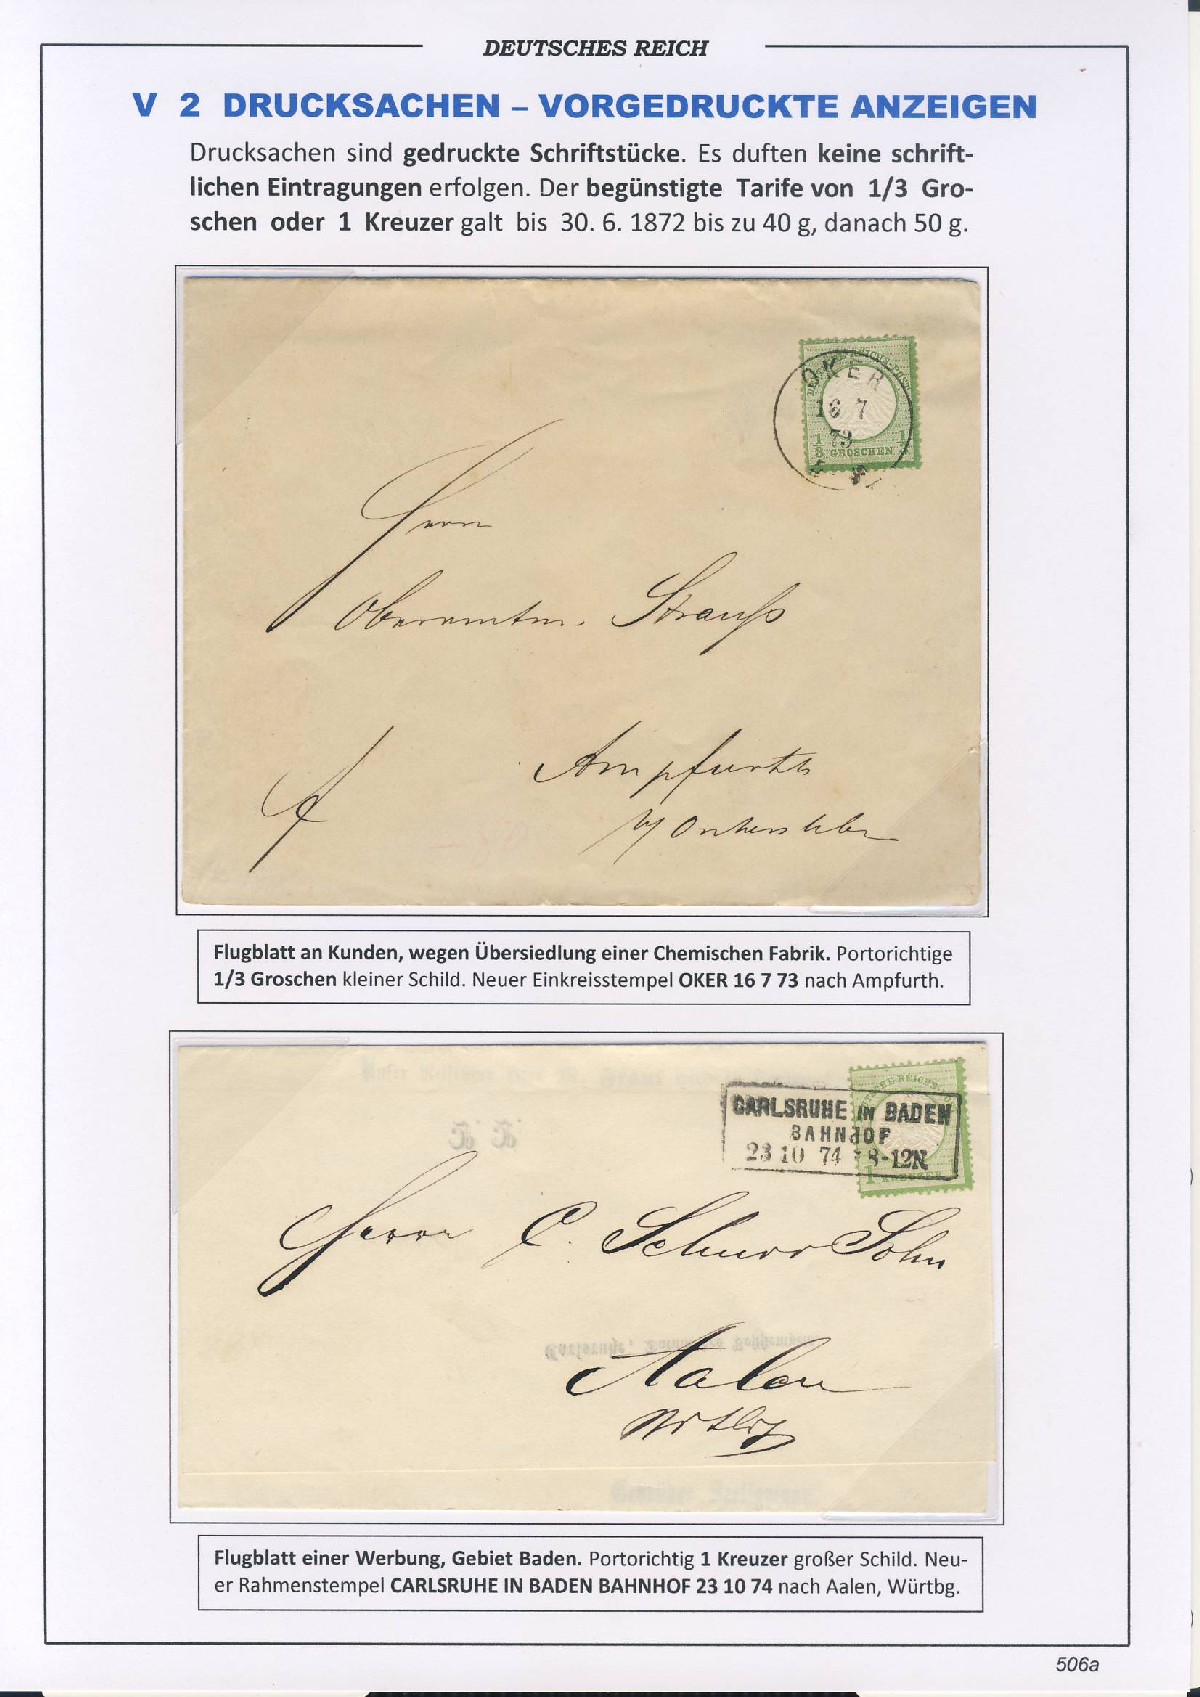 DEUTSCHES REICH
V 2 DRUCKSACHEN – VORGEDRUCKTE ANZEIGEN
Drucksachen sind gedruckte Schriftstücke. Es duften keine schrift-
lichen Eintragungen erfolgen. Der begünstigte Tarife von 1/3 Gro-
schen oder 1 Kreuzer galt bis 30. 6. 1872 bis zu 40 g, danach 50 g.
OKER
16 7
73
GROSCHEN
Herrn
Oberamtm. Strauß
Ampfurth
Flugblatt an Kunden, wegen Übersiedlung einer Chemischen Fabrik. Portorichtige
1/3 Groschen kleiner Schild. Neuer Einkreisstempel OKER 16 7 73 nach Ampfurth.
CARLSRUHE IN BADEN
BAHNHOF
23 10 74 8-12N.
1 KREUZER
Herrn C. Schurr Sohn
Aalen
Flugblatt einer Werbung, Gebiet Baden. Portorichtig 1 Kreuzer großer Schild. Neu-
er Rahmenstempel CARLSRUHE IN BADEN BAHNHOF 23 10 74 nach Aalen, Würtbg.
506a